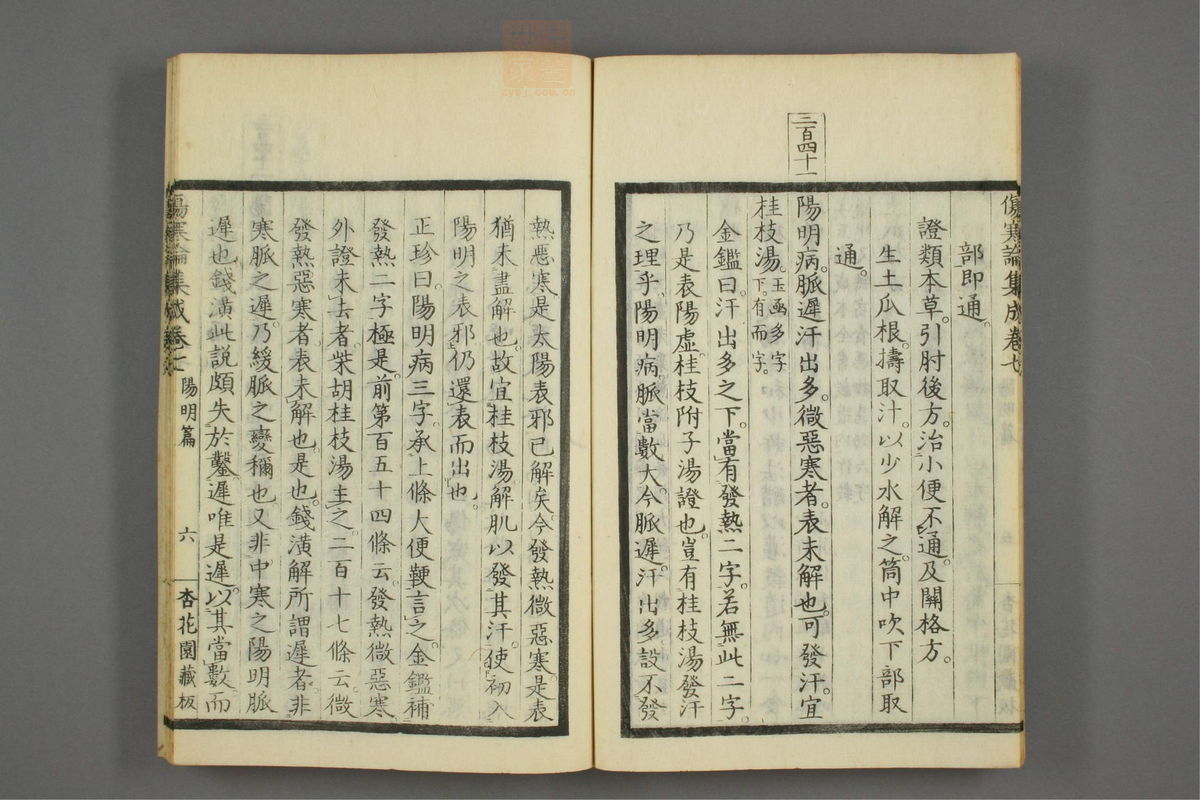 傷寒論集成卷七
部即通。
證類本草。引肘後方。治小便不通。及關格方。
生土瓜根。擣取汁。以少水解之。筒中吹下部取
通。
三百四十一
陽明病。脈遲汗出多。微惡寒者。表未解也。可發汗。宜
桂枝湯。玉函多字下。有而字。
金鑑曰。汗出多之下。當有發熱二字。若無此二字。
乃是表陽虛。桂枝附子湯證也。豈有桂枝湯發汗
之理乎。陽明病。脈當數大。今脈遲。汗出多。設不發
熱惡寒。是太陽表邪已解矣。今發熱微惡寒。是表
猶未盡解也。故宜桂枝湯解肌以發其汗。使初入
陽明之表邪。仍還表而出也。
正珍曰。陽明病三字。承上條大便鞕言之。金鑑補
發熱二字極是。前第百五十四條云。發熱微惡寒
外證未去者。柴胡桂枝湯主之。二百十七條云。微
發熱惡寒者。表未解也。是也。錢潢解所謂遲者。非
寒脈之遲。乃緩脈之變稱也。又非中寒之陽明脈
遲也。錢潢此說頗失於鑿。遲唯是遲。以其當數而
傷寒論集成卷七 陽明篇 六 杏花園藏板
zysj.com.cn